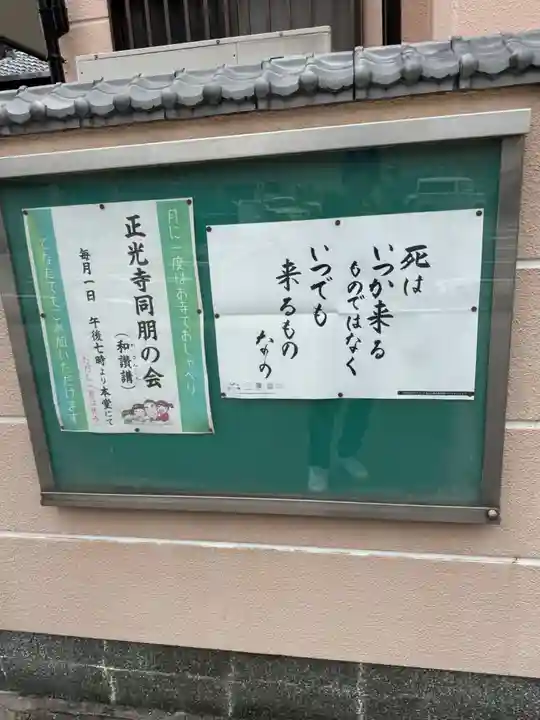 死は
いつか来る
ものではなく
いつでも
来るもの
なの
月に一度はお寺でおしゃべり
正光寺同朋の会
(和讃講)
毎月一日 午後七時より本堂にて
どなたでもご参加いただけます